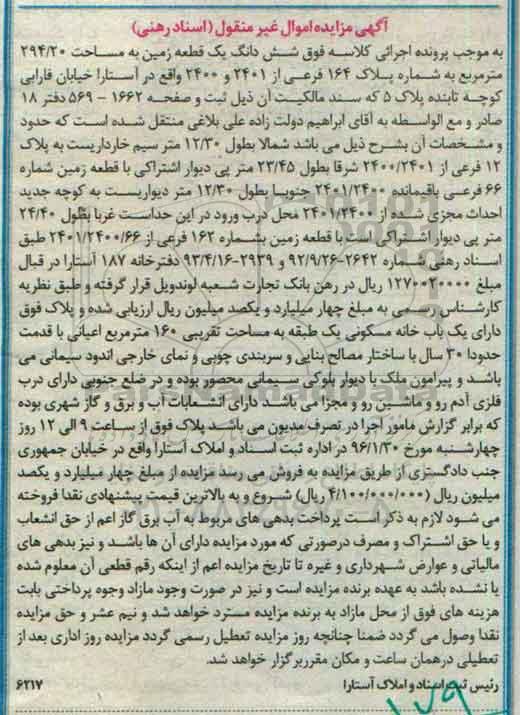 آگهی مزایده اموال غیر منقول (اسناد رهنی)
به موجب پرونده اجرائی کلاسه فوق شش دانگ یک قطعه زمین به مساحت ۲۹۴/۲۰
مترمربع به شماره پلاک ۱۶۴ فرعی از ۲۴۰۱ و ۲۴۰۰ واقع در آستارا خیابان فارابی
کوچه تابنده پلاک ۵ که سند مالکیت آن ذیل ثبت و صفحه ۱۶۶۲ - ۵۶۹ دفتر ۱۸
صادر و مع الواسطه به آقای ابراهیم دولت زاده علی بلاغی منتقل شده است که حدود
و مشخصات آن بشرح ذیل می باشد شمالا بطول ۱۲/۳۰ متر سیم خارداریست به پلاک
۱۲ فرعی از ۲۴۰۰/۲۴۰۱ شرقا بطول ۲۳/۴۵ متر پی دیوار اشتراکی با قطعه زمین شماره
۶۶ فرعی باقیمانده ۲۴۰۱/۲۴۰۰ جنوبا بطول ۱۲/۳۰ متر دیواریست به کوچه جدید
احداث مجزی شده از ۲۴۰۱/۲۴۰۰ محل درب ورود در این حداست غربا بطول ۲۴/۴۰
متر پی دیوار اشتراکی است با قطعه زمین بشماره ۱۶۲ فرعی از ۲۴۰۱/۲۴۰۰/۶۶ طبق
اسناد رهنی شماره ۲۶۴۲-۹۲/۹/۲۶ و ۲۹۳۹-۹۳/۴/۱۶ دفترخانه ۱۸۷ آستارا در قبال
مبلغ ۱۲۷۰۰۲۰۰۰۰ ریال در رهن بانک تجارت شعبه لوندویل قرار گرفته و طبق نظریه
کارشناس رسمی به مبلغ چهار میلیارد و یکصد میلیون ریال ارزیابی شده و پلاک فوق
دارای یک باب خانه مسکونی یک طبقه به مساحت تقریبی ۱۶۰ مترمربع اعیانی با قدمت
حدودا ۳۰ سال با ساختار مصالح بنایی و سربندی چوبی و نمای خارجی اندود سیمانی می
باشد و پیرامون ملک با دیوار بلوکی سیمانی محصور بوده و در ضلع جنوبی دارای درب
فلزی آدم رو و ماشین رو و مجزا می باشد دارای انشعابات آب و برق و گاز شهری بوده
که برابر گزارش مامور اجرا در تصرف مدیون می باشد پلاک فوق از ساعت ۹ الی ۱۲ روز
چهارشنبه مورخ ۹۶/۱/۳۰ در اداره ثبت اسناد و املاک آستارا واقع در خیابان جمهوری
جنب دادگستری از طریق مزایده به فروش می رسد مزایده از مبلغ چهار میلیارد و یکصد
میلیون ریال (۴/۱۰۰/۰۰۰/۰۰۰ ریال) شروع و به بالاترین قیمت پیشنهادی نقدا فروخته
می شود لازم به ذکر است پرداخت بدهی های مربوط به آب برق گاز اعم از حق انشعاب
و یا حق اشتراک و مصرف درصورتی که مورد مزایده دارای آن ها باشد و نیز بدهی های
مالیاتی و عوارض شهرداری و غیره تا تاریخ مزایده اعم از اینکه رقم قطعی آن معلوم شده
یا نشده باشد به عهده برنده مزایده است و نیز در صورت وجود مازاد وجوه پرداختی بابت
هزینه های فوق از محل مازاد به برنده مزایده مسترد خواهد شد و نیم عشر و حق مزایده
نقدا وصول می گردد ضمنا چنانچه روز مزایده تعطیل رسمی گردد مزایده روز اداری بعد از
تعطیلی درهمان ساعت و مکان مقرر برگزار خواهد شد.
رئیس ثبت اسناد و املاک آستارا ۶۲۱۷
۱۷۹